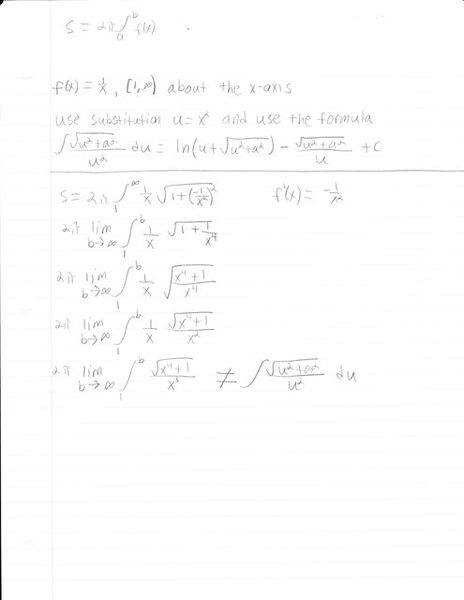 S = 2π ∫_a^b f(x)
f(x) = 1/x, [1, ∞) about the x-axis
use substitution u = x² and use the formula
∫ √(u²+a²)/u² du = ln(u + √(u²+a²)) − √(u²+a²)/u + C
S = 2π ∫_1^∞ 1/x √(1+(-1/x²)²) f'(x) = -1/x²
2π lim b→∞ ∫_1^b 1/x √(1 + 1/x⁴)
2π lim b→∞ ∫_1^b 1/x √((x⁴+1)/x⁴)
2π lim b→∞ ∫_1^b 1/x √(x⁴+1)/x²
2π lim b→∞ ∫_1^b √(x⁴+1)/x³ ≠ ∫ √(u²+a²)/u² du